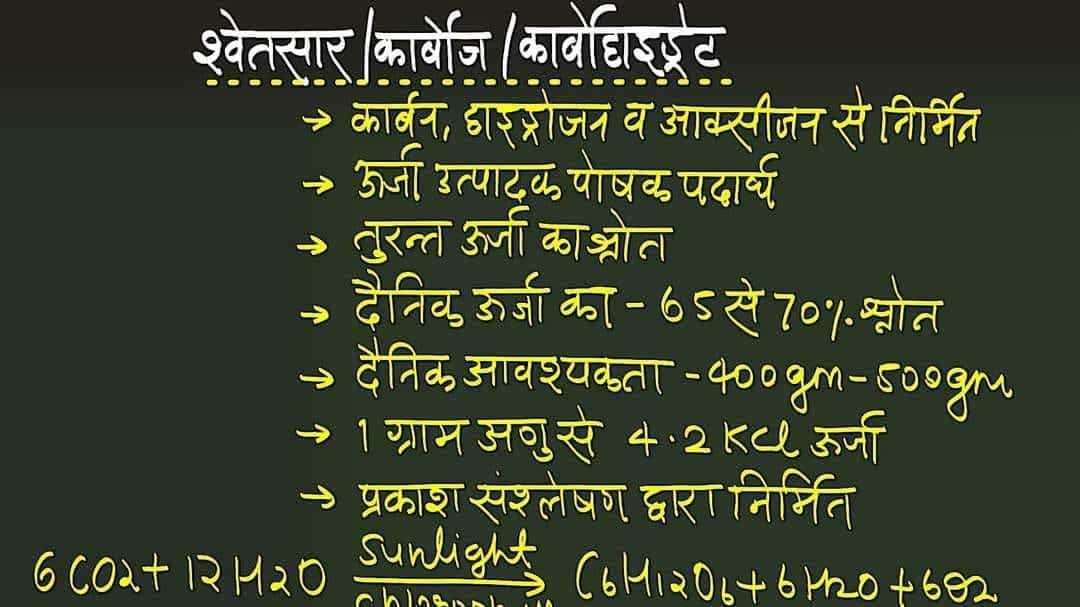 श्वेतसार/कार्बोज/कार्बोहाइड्रेट
→ कार्बन, हाइड्रोजन व आक्सीजन से निर्मित
→ ऊर्जा उत्पादक पोषक पदार्थ
→ तुरन्त ऊर्जा का श्रोत
→ दैनिक ऊर्जा का - 65 से 70%. श्रोत
→ दैनिक आवश्यकता - 400gm - 500gm
→ 1 ग्राम अणु से 4.2 KCl ऊर्जा
→ प्रकाश संश्लेषण द्वारा निर्मित
Sunlight
6CO2 + 12H2O → C6H12O6 + 6H2O + 6O2